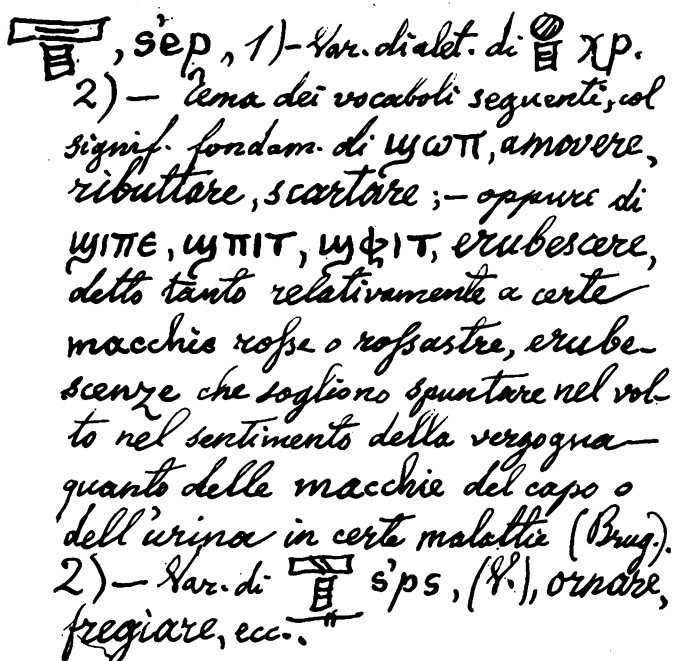 , s'ep, 1)– Var. dialet. di χp.
2) — Tema dei vocaboli seguenti, col
signif. fondam. di ϣωπ, amovere,
ributtare, scartare ; – oppure di
ϣιπε, ϣπιτ, ϣϕιτ, erubescere,
detto tanto relativamente a certe
macchie roſse o roſsastre, erube-
scenze che sogliono spuntare nel vol-
to nel sentimento della vergogna —
quanto delle macchie del capo o
dell'urina in certe malattie (Brug.).
2) — Var. di s'ps, (V.), ornare,
fregiare, ecc..